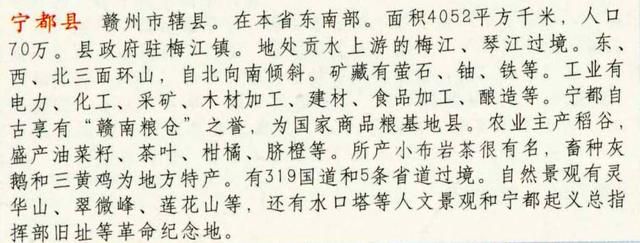 宁都县 赣州市辖县。在本省东南部。面积4052平方千米，人口
70万。县政府驻梅江镇。地处贡水上游的梅江、琴江过境。东、
西、北三面环山，自北向南倾斜。矿藏有萤石、铀、铁等。工业有
电力、化工、采矿、木材加工、建材、食品加工、酿造等。宁都自
古享有“赣南粮仓”之誉，为国家商品粮基地县。农业主产稻谷，
盛产油菜籽、茶叶、柑橘、脐橙等。所产小布岩茶很有名，畜种灰
鹅和三黄鸡为地方特产。有319国道和5条省道过境。自然景观有灵
华山、翠微峰、莲花山等，还有水口塔等人文景观和宁都起义总指
挥部旧址等革命纪念地。